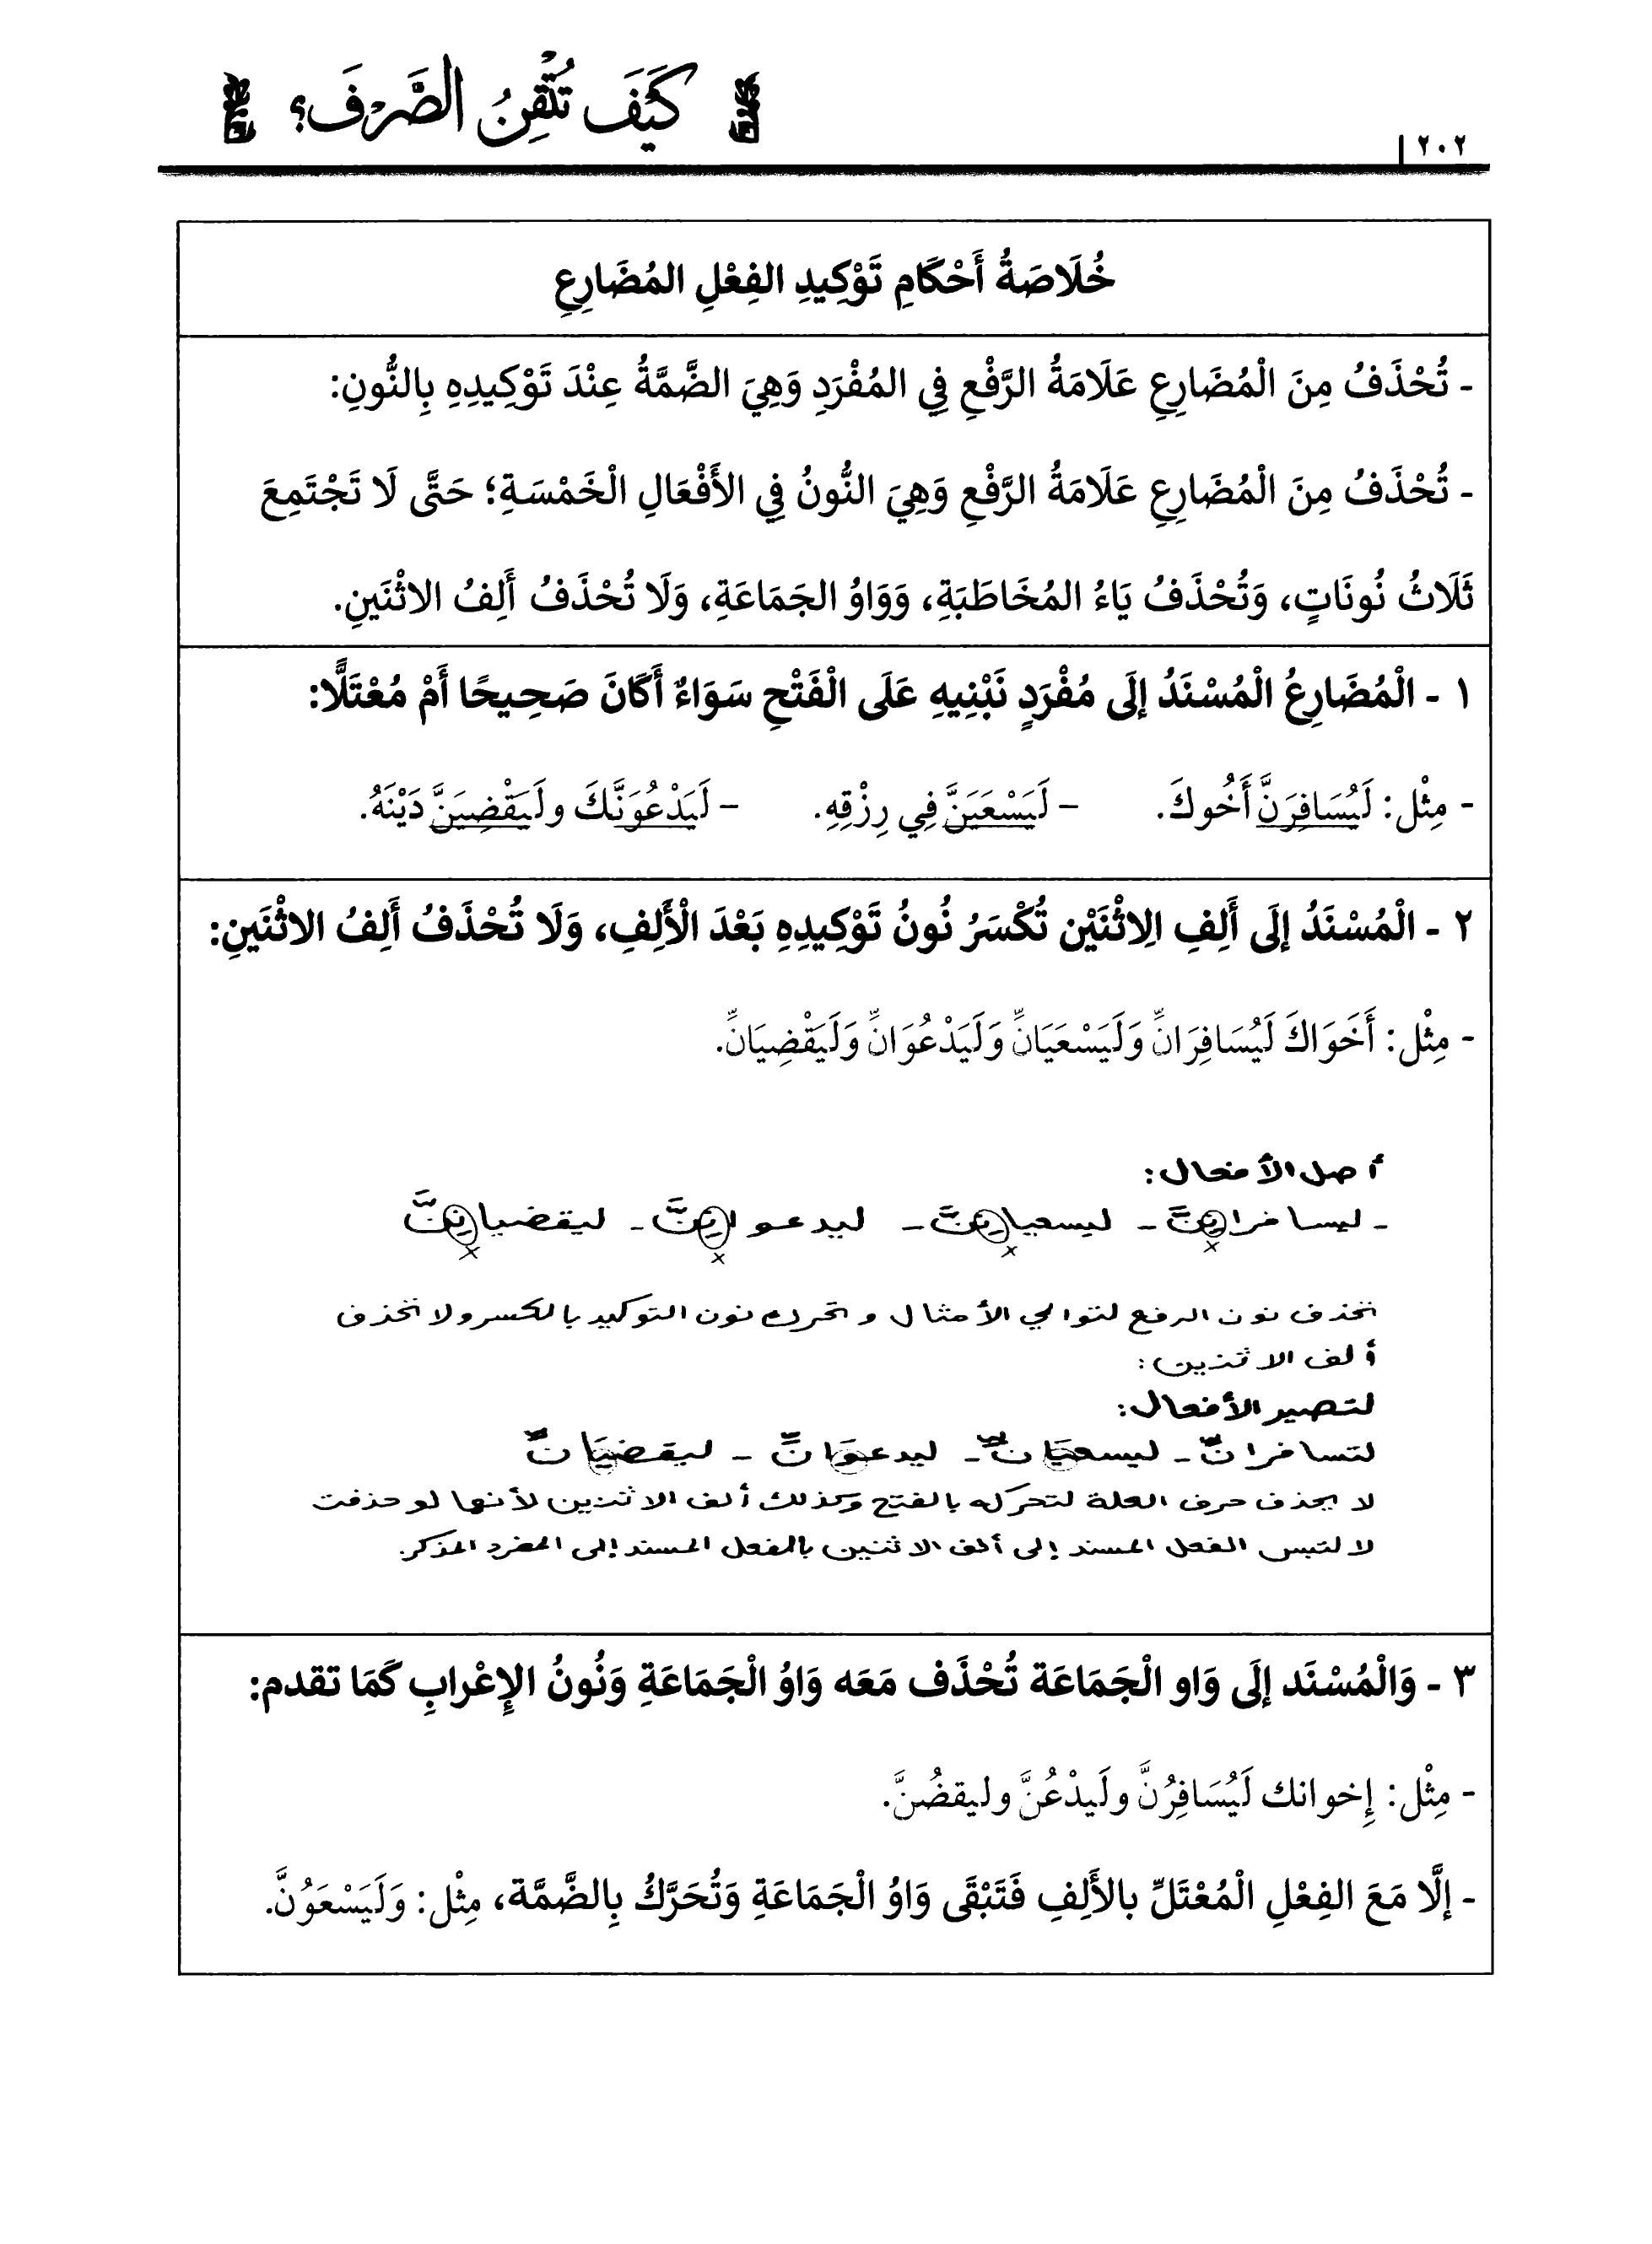 كَيْفَ تُتْقِنُ الصَّرْفَ؟
٢٠٢
خُلَاصَةُ أَحْكَامِ تَوْكِيدِ الفِعْلِ المُضَارِعِ
- تُحْذَفُ مِنَ الْمُضَارِعِ عَلَامَةُ الرَّفْعِ فِي المُفْرَدِ وَهِيَ الضَّمَّةُ عِنْدَ تَوْكِيدِهِ بِالنُّونِ:
- تُحْذَفُ مِنَ الْمُضَارِعِ عَلَامَةُ الرَّفْعِ وَهِيَ النُّونُ فِي الأَفْعَالِ الْخَمْسَةِ؛ حَتَّى لَا تَجْتَمِعَ
ثَلَاثُ نُونَاتٍ، وَتُحْذَفُ يَاءُ المُخَاطَبَةِ، وَوَاوُ الجَمَاعَةِ، وَلَا تُحْذَفُ أَلِفُ الاثْنَينِ.
١ - الْمُضَارِعُ الْمُسْنَدُ إلَى مُفْرَدٍ نَبْنِيهِ عَلَى الْفَتْحِ سَوَاءٌ أَكَانَ صَحِيحًا أَمْ مُعْتَلًّا:
- مِثْل: لَيُسَافِرَنَّ أَخُوكَ. – لَيَسْعَيَنَّ فِي رِزْقِهِ. – لَيَدْعُوَنَّكَ ولَيَقْضِيَنَّ دَيْنَهُ.
٢ - الْمُسْنَدُ إلَى أَلِفِ الِاثْنَيْن تُكْسَرُ نُونُ تَوْكِيدِهِ بَعْدَ الْأَلِفِ، وَلَا تُحْذَفُ أَلِفُ الاثْنَينِ:
- مِثْل: أَخَوَاكَ لَيُسَافِرَانِّ وَلَيَسْعَيَانِّ وَلَيَدْعُوَانِّ وَلَيَقْضِيَانِّ.
أصل الأفعال:
- ليسافرانِنَّ - ليسعيانِنَّ - ليدعوانِنَّ - ليقضيانِنَّ
تحذف نون الرفع لتوالي الأمثال وتحرك نون التوكيد بالكسر ولا تحذف
ألف الاثنين:
لتصير الأفعال:
لتسافرانِّ - ليسعيَانِّ - ليدعوَانِّ - ليقضيَانِّ
لا يحذف حرف العلة لتحركه بالفتح وكذلك ألف الاثنين لأنها لو حذفت
لالتبس الفعل المسند إلى ألف الاثنين بالفعل المسند إلى المفرد المذكر.
٣ - وَالْمُسْنَد إلَى وَاو الْجَمَاعَة تُحْذَف مَعَه وَاوُ الْجَمَاعَةِ وَنُونُ الإِعْرابِ كَمَا تقدم:
- مِثْل: إِخوانك لَيُسَافِرُنَّ ولَيدْعُنَّ وليقضُنَّ.
- إلَّا مَعَ الفِعْلِ الْمُعْتَلِّ بالأَلِفِ فَتَبْقَى وَاوُ الْجَمَاعَةِ وَتُحَرَّكُ بِالضَّمَّة، مِثْل: وَلَيَسْعَوُنَّ.